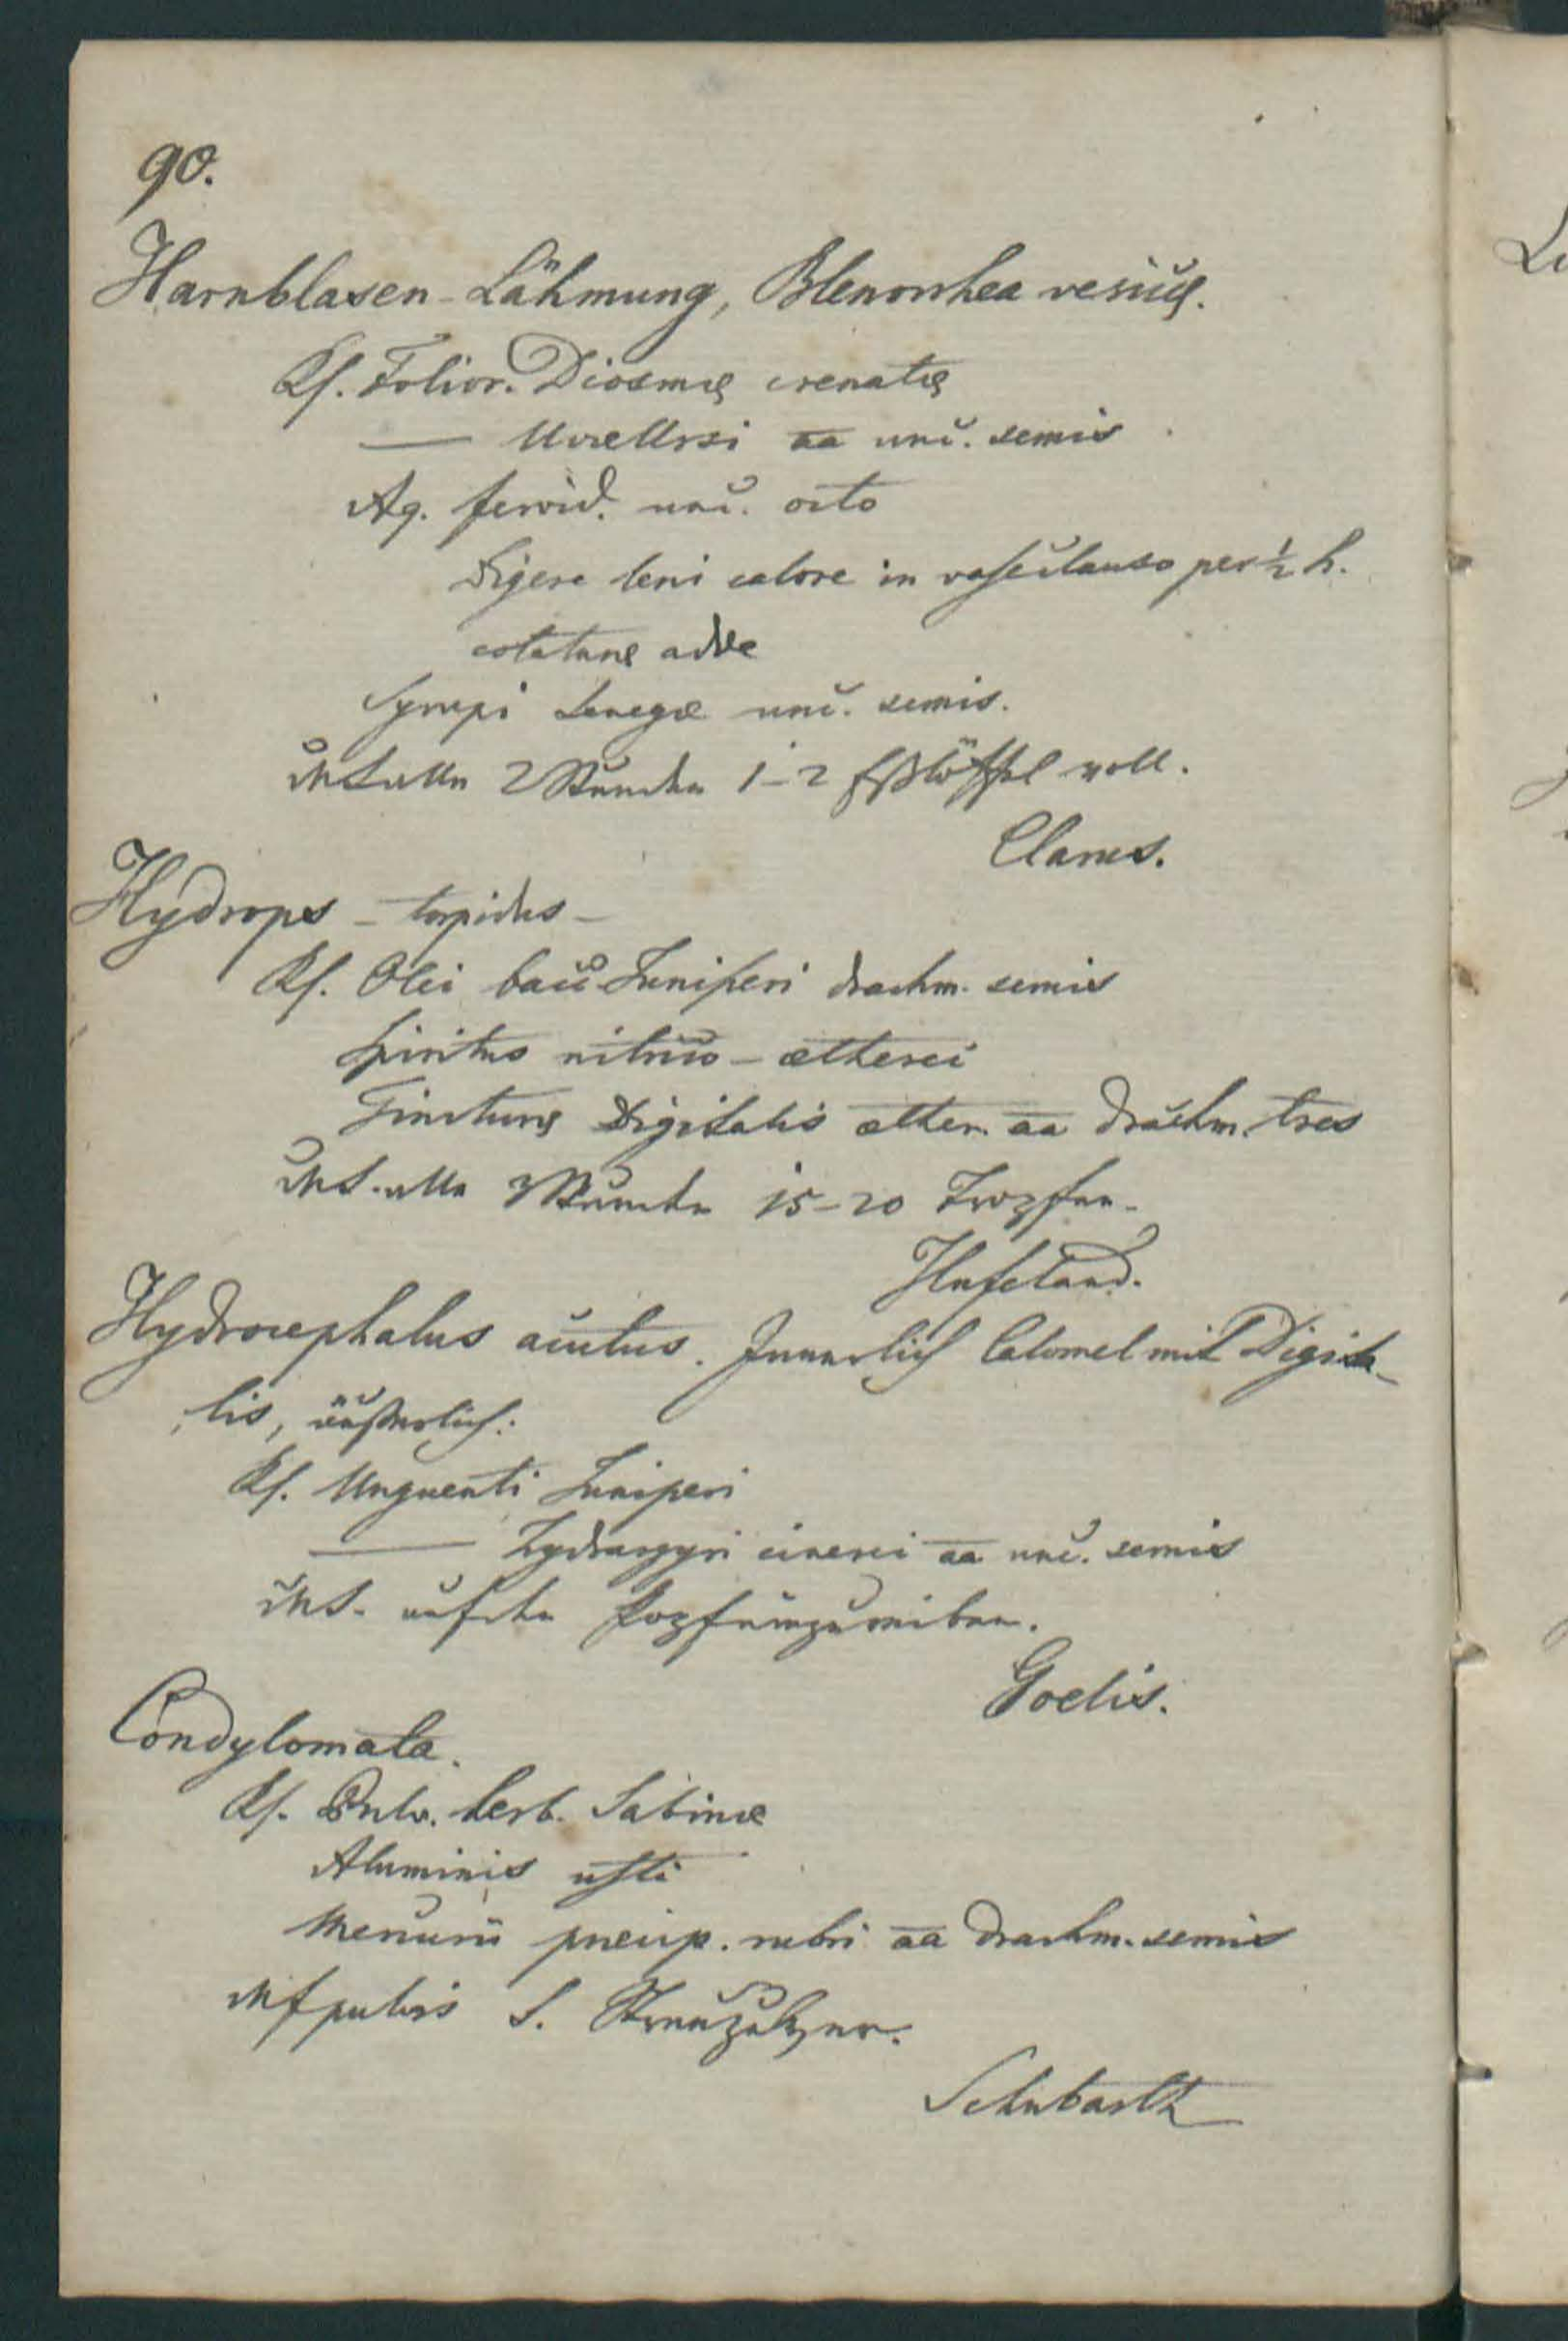 90.
Harnblasen-Lähmung, Blenorrhea vesicæ.
Rf. Folior. Diosmæ crenatæ
— Uvæ Ursi aa unc. semis
Aq. fervid. unc. octo
Digere leni calore in vase clauso per ½ h.
colaturæ adde
Syrupi Senegæ unc. semis.
MS. alle 2 Stunden 1–2 Eßlöffel voll.
Clarus.
Hydrops – torpidus –
Rf. Olei bacc Juniperi drachm. semis
Spiritus nitrico-ætherei
Tincturæ Digitalis æther. aa drachm. tres
MS. alle 3 Stunden 15–20 Tropfen.
Hufeland.
Hydrocephalus acutus. Innerlich Calomel mit Digita-
lis, äußerlich:
Rf. Unguenti Juniperi
— Hydrargyri cinerei aa unc. semis
MS. auf den Kopf einzureiben.
Goelis.
Condylomata.
Rf. Pulv. herb. Sabinæ
Aluminis usti
Mercurii præcip. rubri aa drachm. semis
Mf pulvis S. Streupulver.
Schubarth